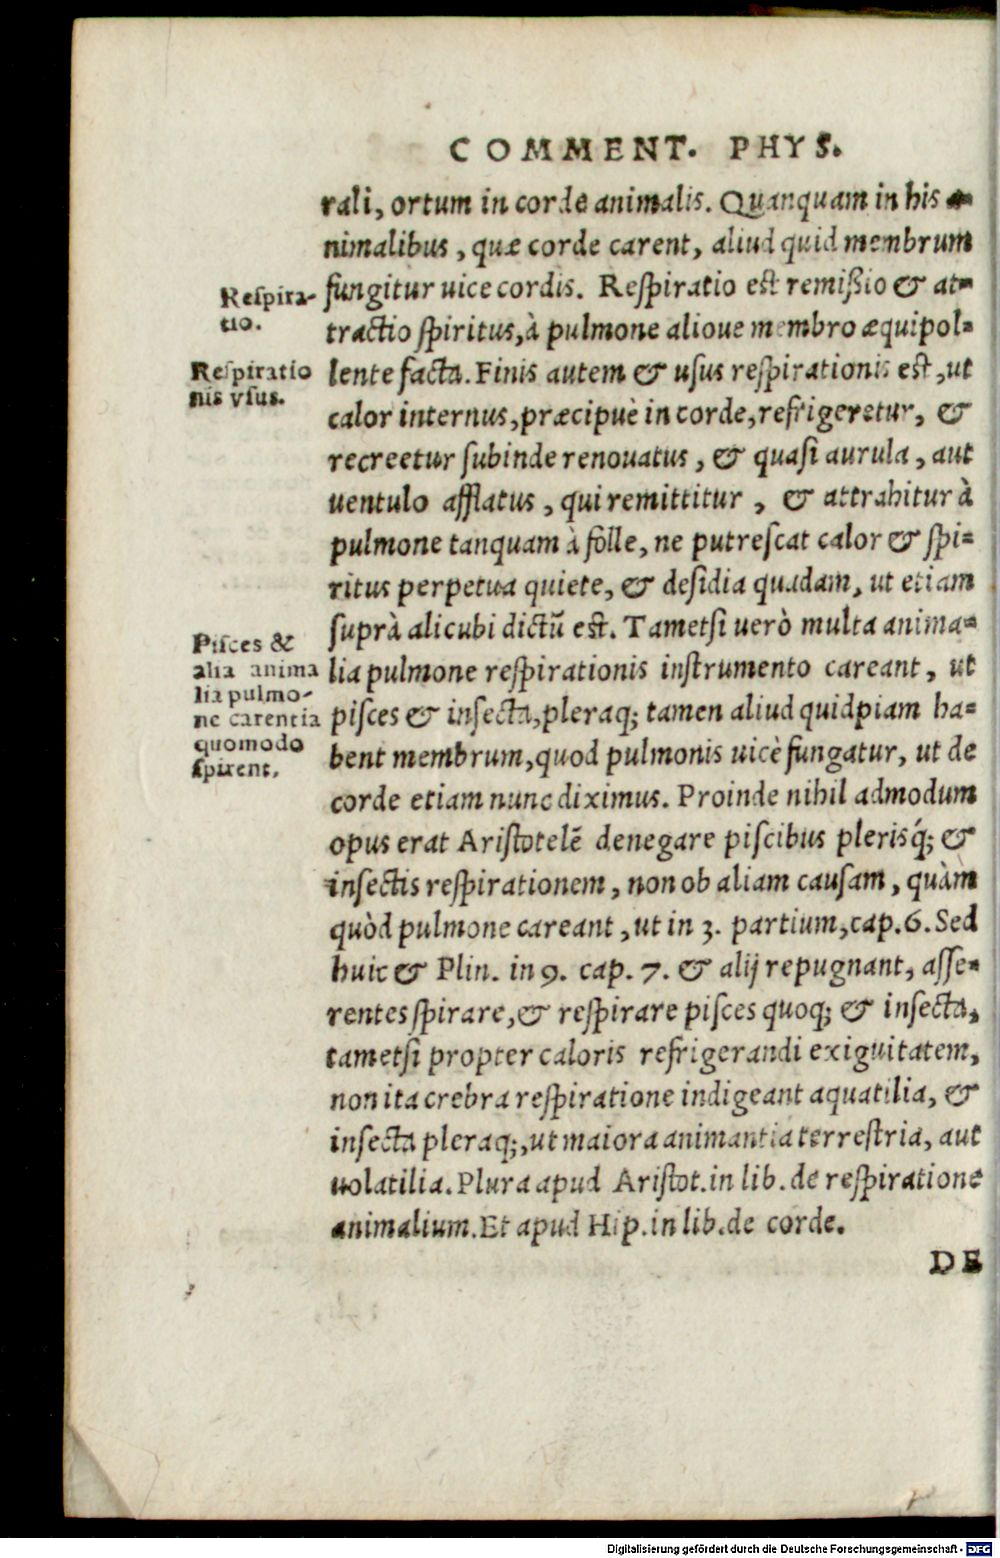 COMMENT. PHYS.
rali, ortum in corde animalis. Quanquam in his a-
nimalibus, quæ corde carent, aliud quid membrum
Respira-
tio.
fungitur uice cordis. Respiratio est remißio & at-
tractio spiritus, à pulmone alioue membro æquipol-
Respiratio
nis vsus.
lente facta. Finis autem & usus respirationis est, ut
calor internus, præcipuè in corde, refrigeretur, &
recreetur subinde renouatus, & quasi aurula, aut
uentulo afflatus, qui remittitur, & attrahitur à
pulmone tanquam à folle, ne putrescat calor & spi-
ritus perpetua quiete, & desidia quadam, ut etiam
suprà alicubi dictũ est. Tametsi uerò multa anima-
Pisces &
alia anima
lia pulmo-
ne carentia
quomodo
spirent.
lia pulmone respirationis instrumento careant, ut
pisces & insecta, pleraq; tamen aliud quidpiam ha-
bent membrum, quod pulmonis uicè fungatur, ut de
corde etiam nunc diximus. Proinde nihil admodum
opus erat Aristotelẽ denegare piscibus plerisq́; &
insectis respirationem, non ob aliam causam, quàm
quòd pulmone careant, ut in 3. partium, cap. 6. Sed
huic & Plin. in 9. cap. 7. & alij repugnant, asse-
rentes spirare, & respirare pisces quoq; & insecta,
tametsi propter caloris refrigerandi exiguitatem,
non ita crebra respiratione indigeant aquatilia, &
insecta pleraq;, ut maiora animantia terrestria, aut
uolatilia. Plura apud Aristot. in lib. de respiratione
animalium. Et apud Hip. in lib. de corde.
DE
Digitalisierung gefördert durch die Deutsche Forschungsgemeinschaft - DFG